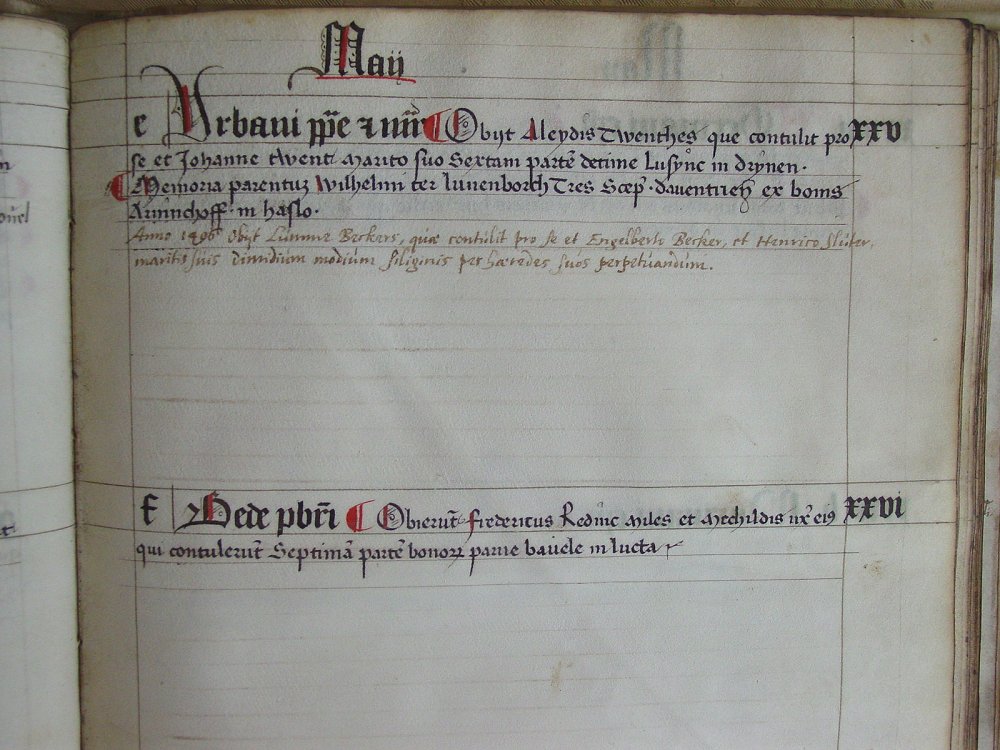 Maij
e Urbani ppe et mr Obijt Aleydis Twenthes que contulit pro xxv
se et Johanne twent marito suo Sextam partē decime Lusync in drynen.
Memoria parentuz Wilhelmi ter lunenborch Tres Scep. daventrieñ ex bonis
Arninchoff in haslo.
Anno 1496 Obijt Lumme Beckers, quæ contulit pro se et Engelberto Becker, et Henrico Sluter,
maritis suis dimidium modium siliginis per hæredes suos perpetuandum.
f Bede pbri Obierūt fredericus Redinc miles et mechildis ux eiꝰ xxvi
qui contulerūt Septimā partē bonorꝝ parve bavele in lucta